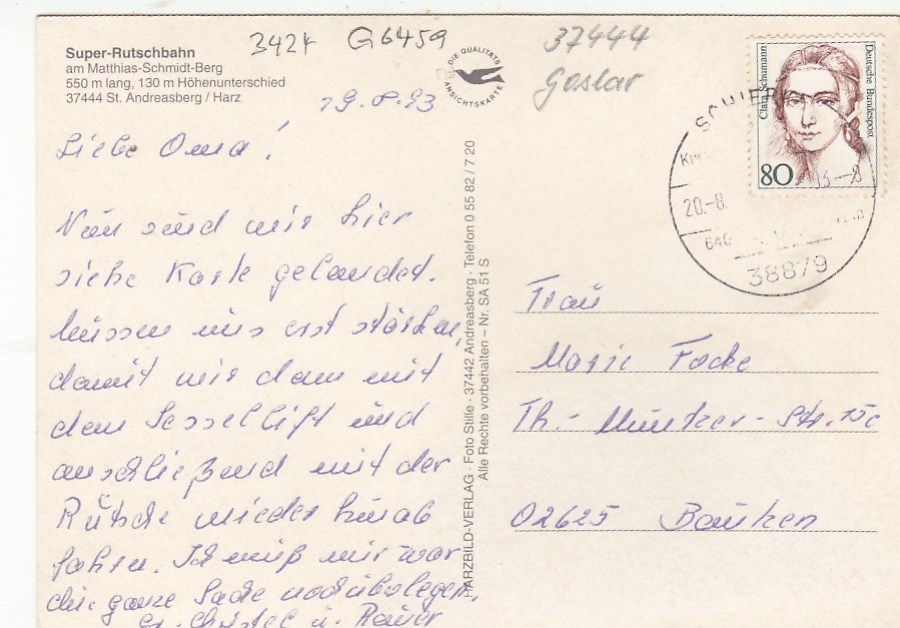 Super-Rutschbahn
am Matthias-Schmidt-Berg
550 m lang, 130 m Höhenunterschied
37444 St. Andreasberg / Harz
3424 G6459
DIE QUALITÄTS
ANSICHTSKARTE
37444
Goslar
19.8.93
Liebe Oma!
Nun sind wir hier
siehe Karte gelandet.
Müssen uns erst stärken,
damit wir dann mit
dem Sessellift und
anschließend mit der
Rutsche wieder hinab
fahren. Ich muß mir zwar
die ganze Sache noch überlegen.
Christel u. Rainer
HARZBILD-VERLAG · Foto Stille · 37442 Andreasberg · Telefon 0 55 82 / 7 20
Alle Rechte vorbehalten – Nr. SA 51 S
Clara Schumann
Deutsche Bundespost
80
SCHIERKE
20.-8.
38879
Frau
Marie Focke
Th.-Müntzer-Str. 15c
02625 Bautzen